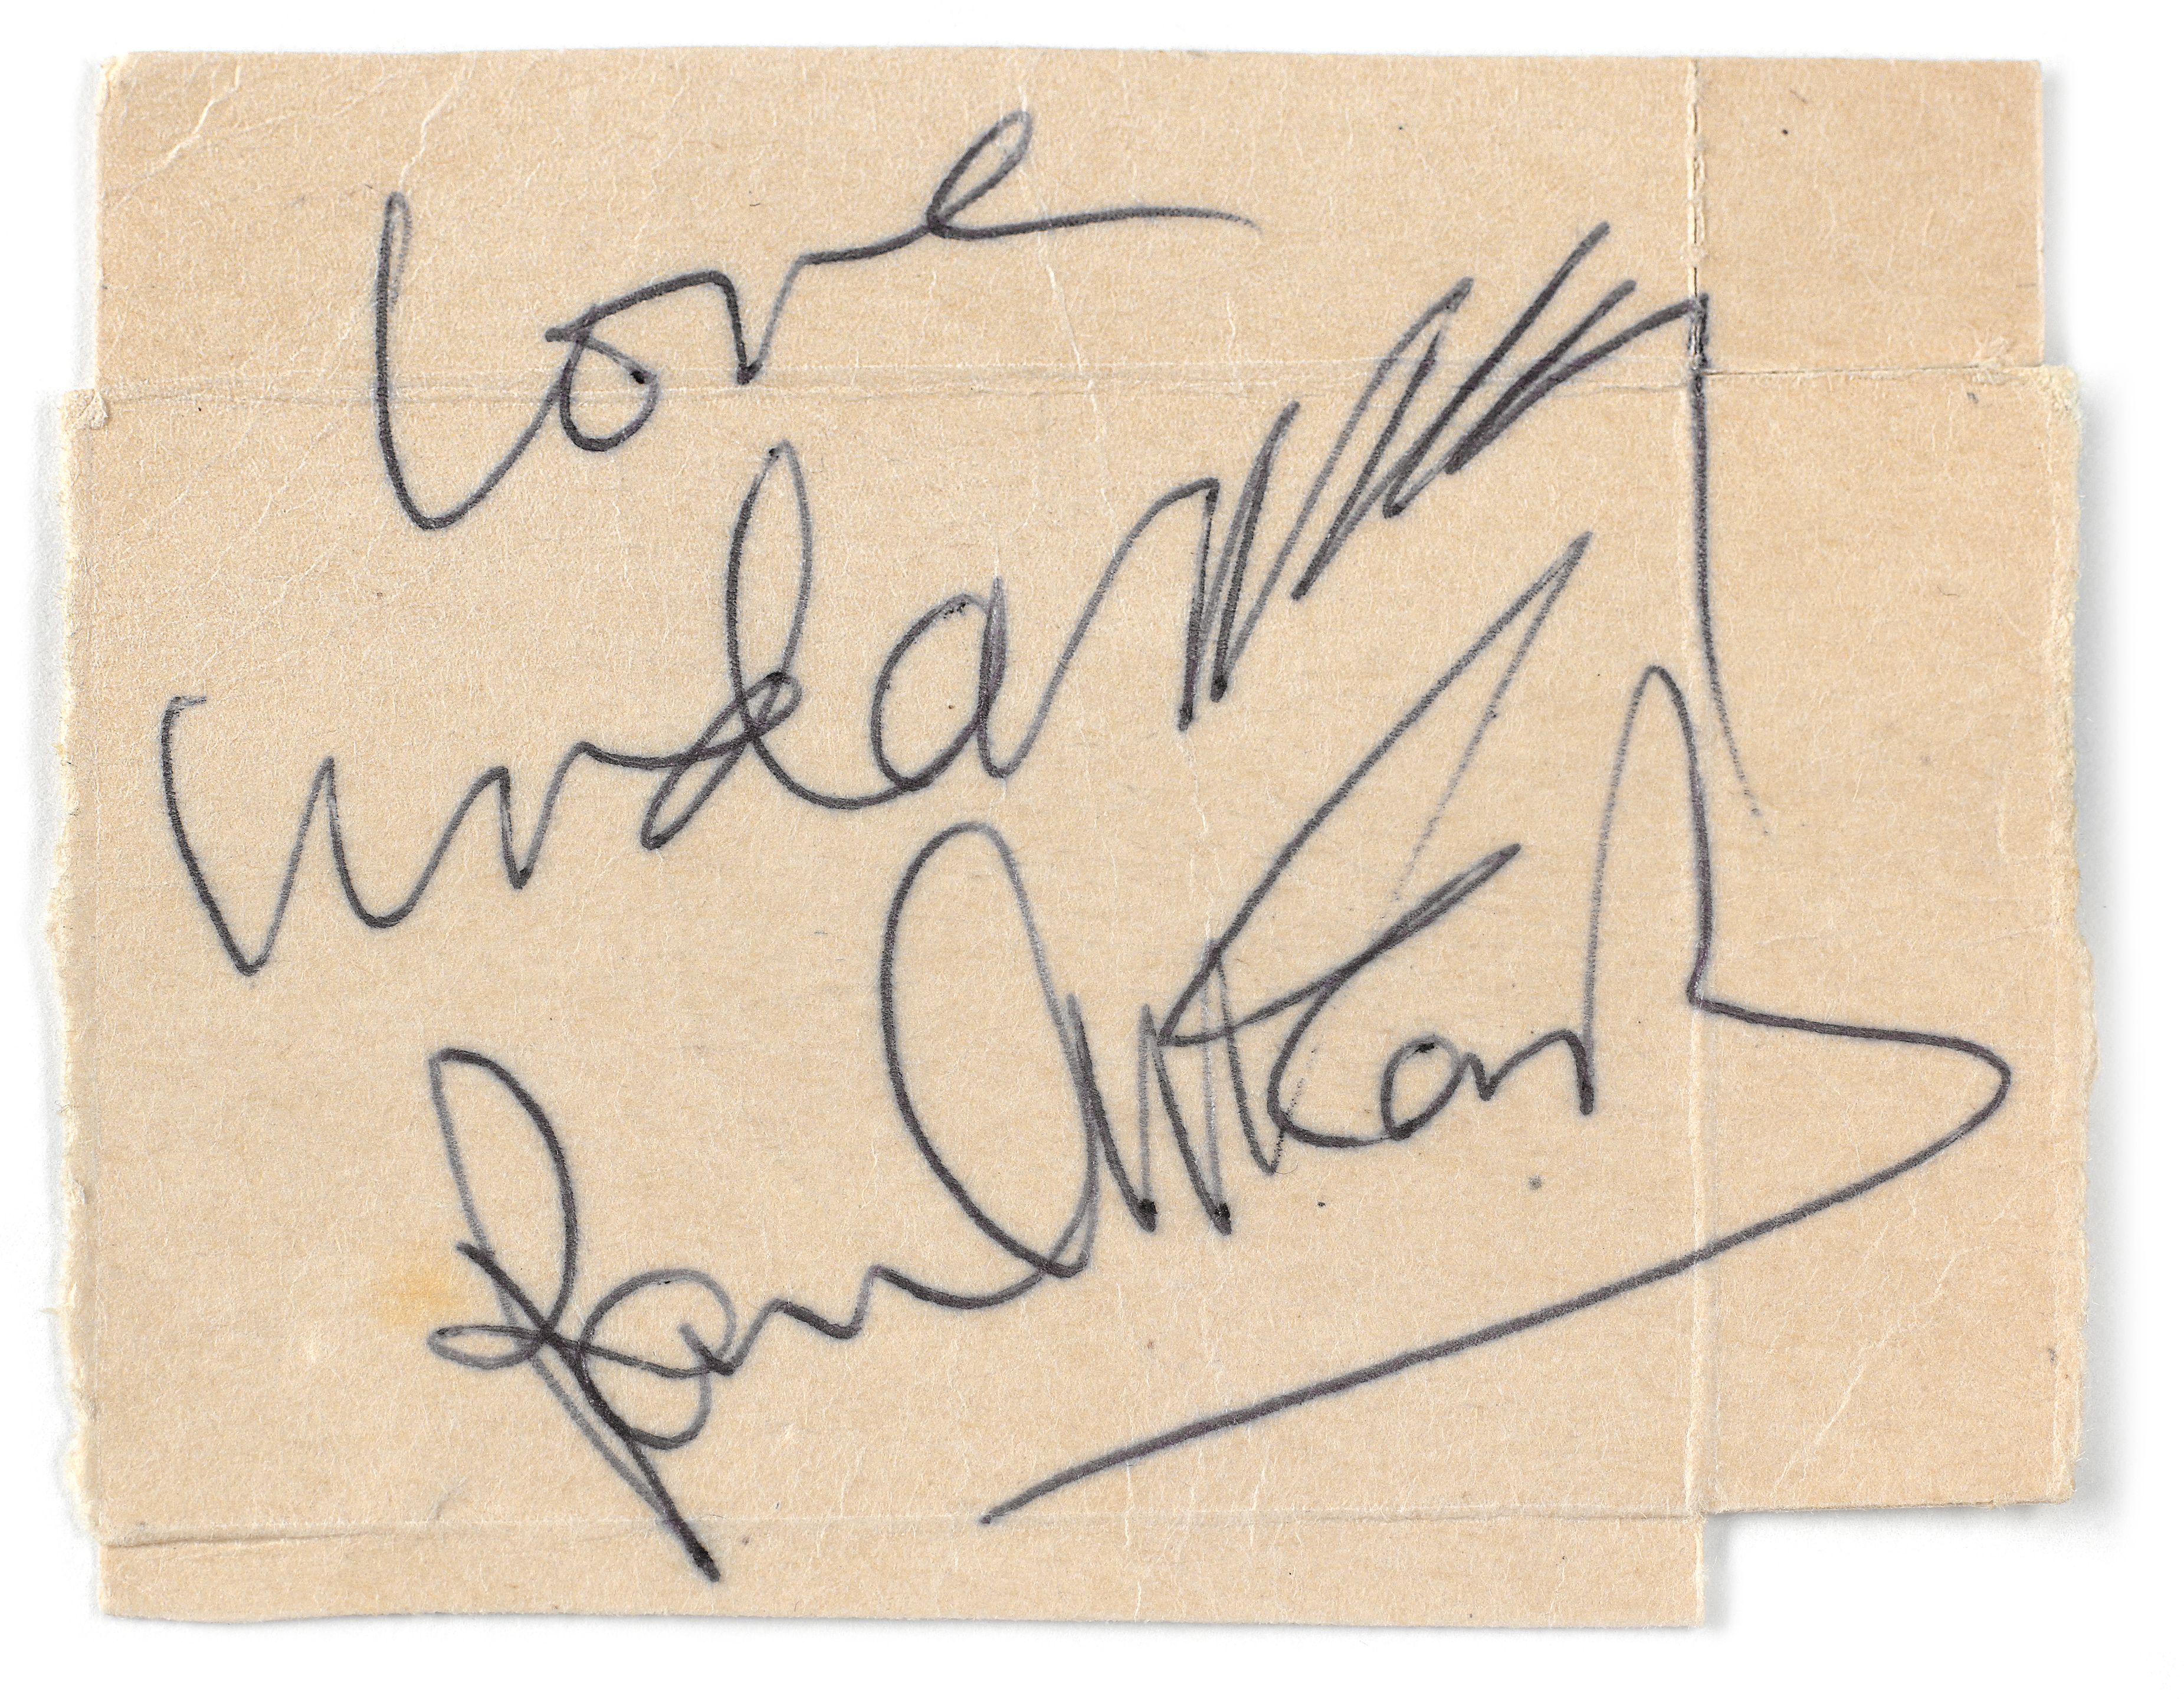 love
Linda
Paul McCartney